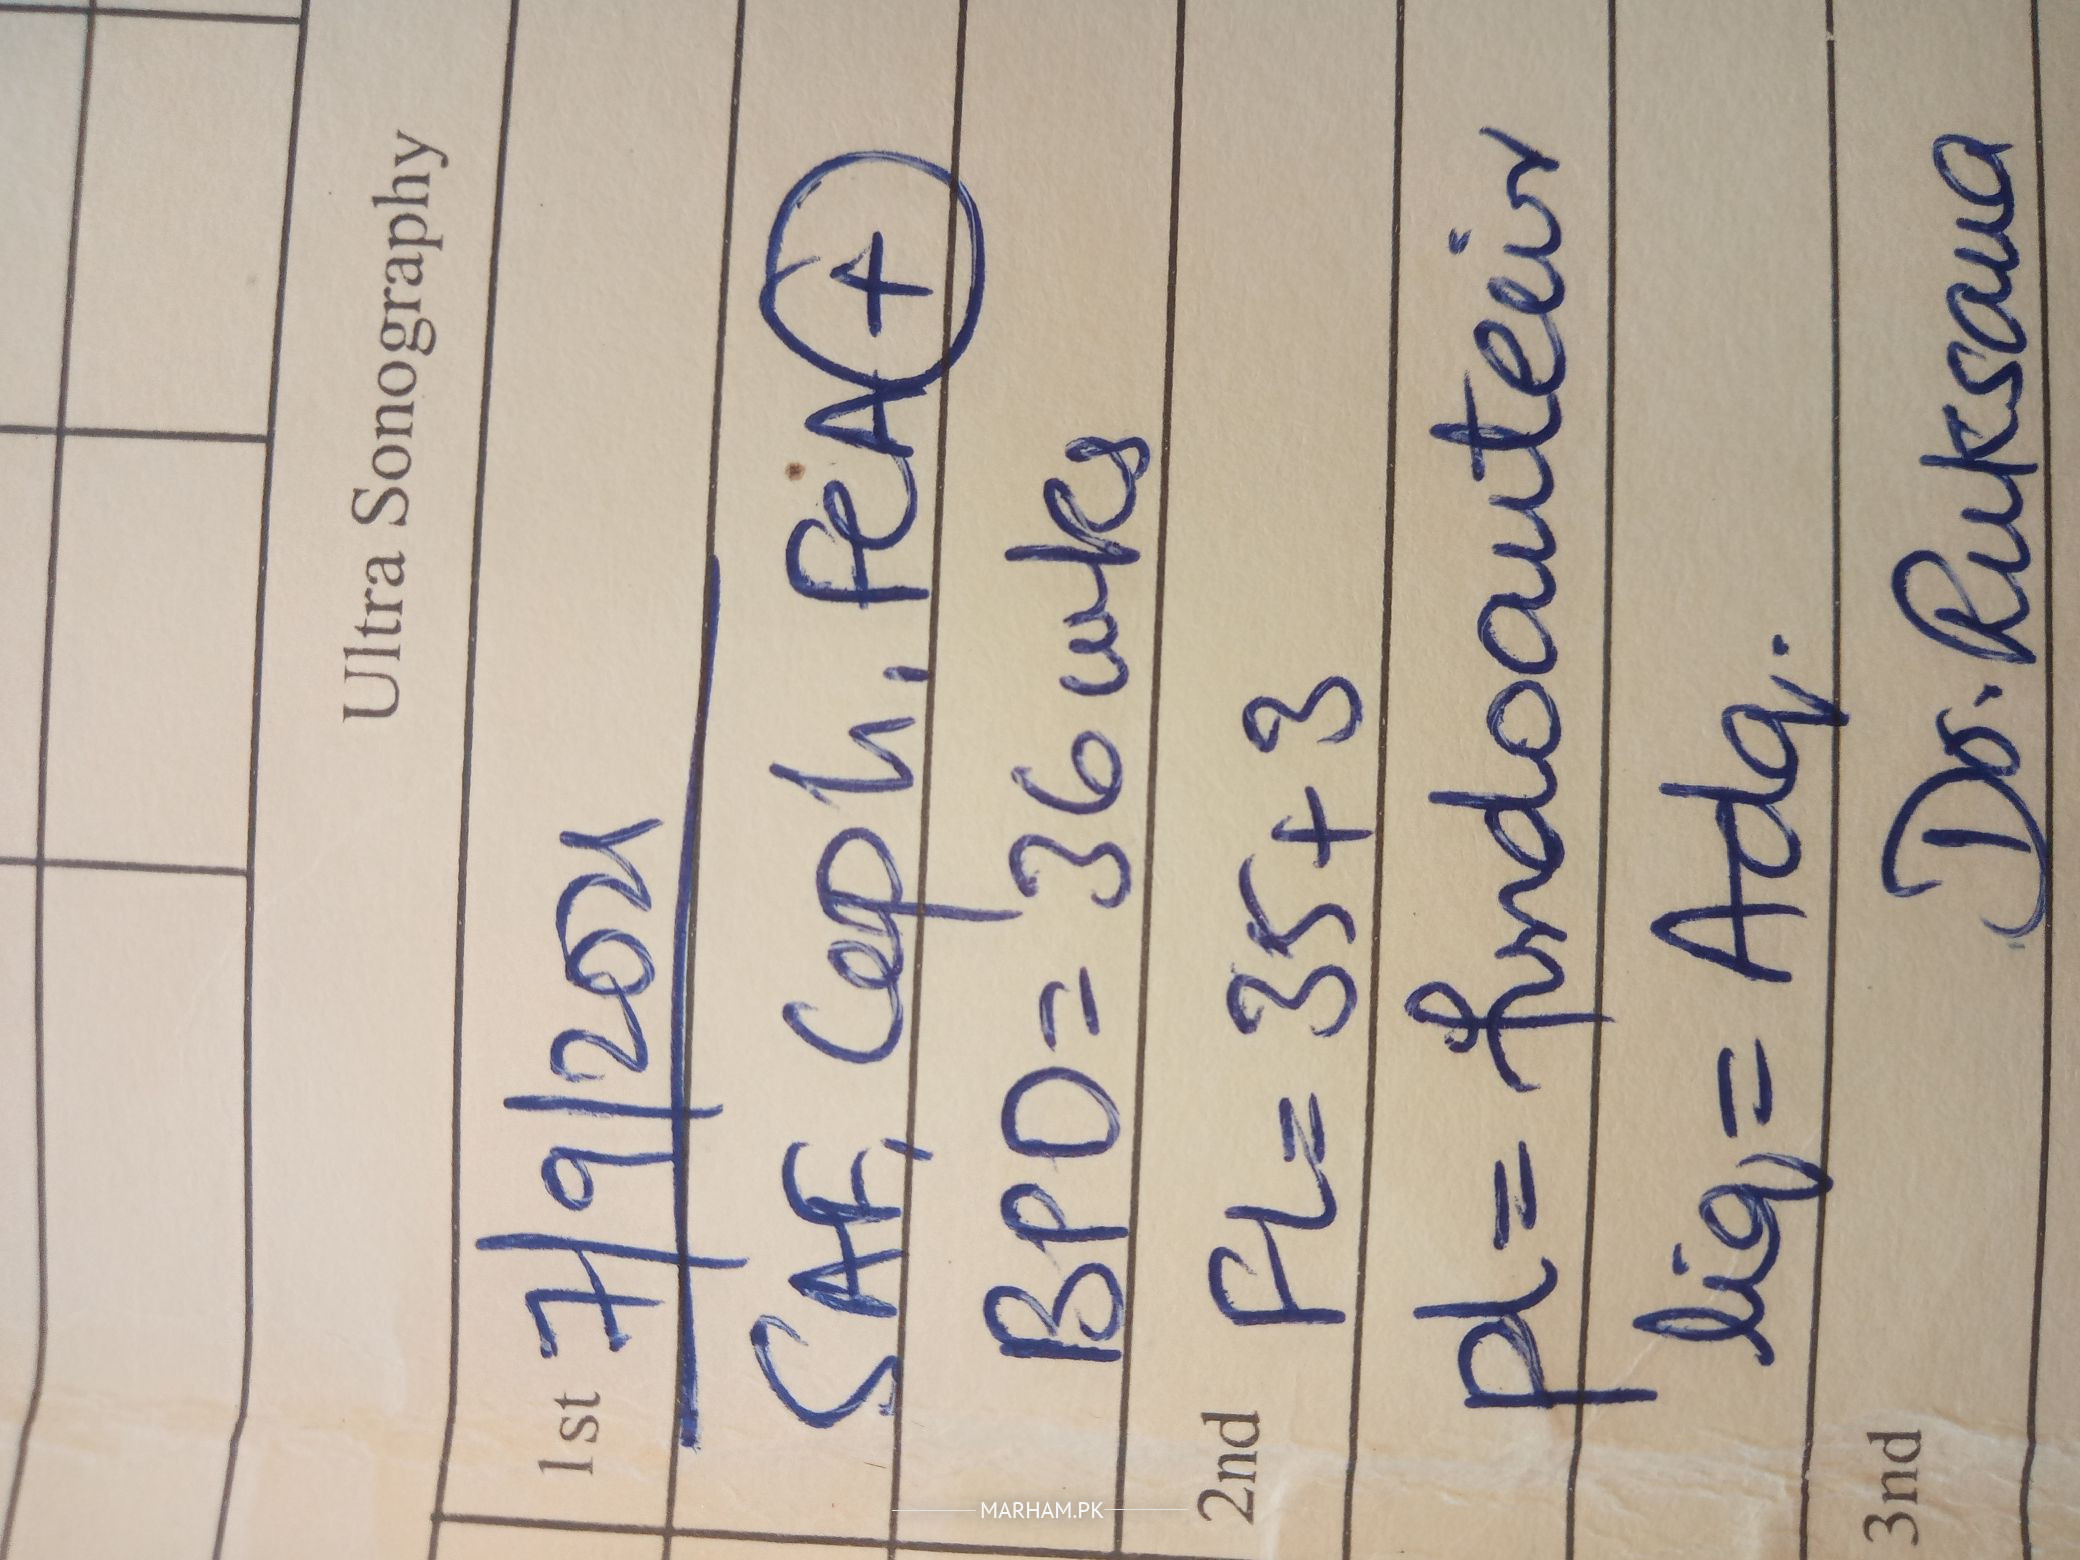 Ultra Sonography
1st 7/9/2021
SAF, Ceph, PCA +
BPD = 36 wks
2nd FL = 35+3
Pl = fundoanteior
liq = Adq.
3nd Dr. Ruksana
MARHAM.PK